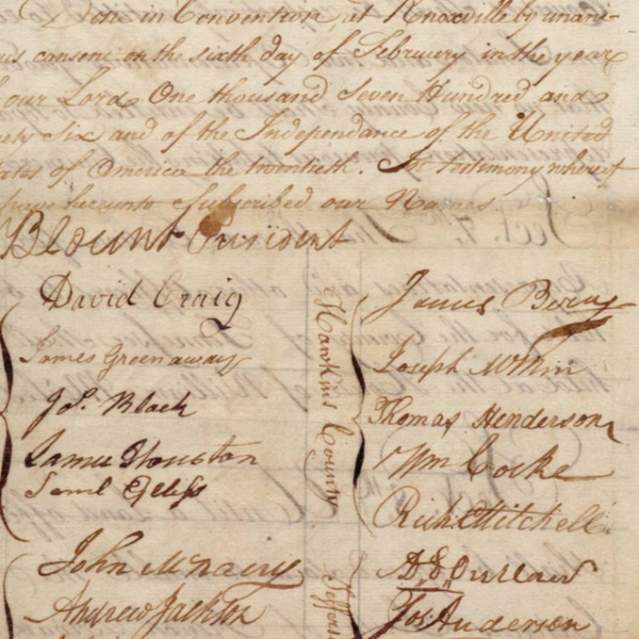 Done in Convention, at Knoxville by unani-
us consent on the sixth day of February in the year
our Lord One thousand Seven Hundred and
ety Six and of the Independance of the United
ates of America the twentieth. In testimony whereof
have hereunto Subscribed our Names
Blount President
David Craig
James Greenaway
Jos. Black
Samuel Houston
Saml
John McNairy
Andrew Jackson
Hawkins County
James Berry
Joseph
Thomas Henderson
Wm Cocke
Richd Mitchell
Jefferso
Jos. Anderson